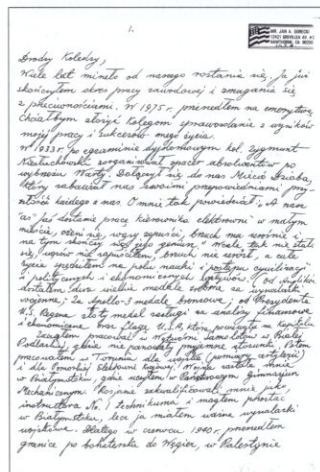 1.
MR. JAN A. GORECKI
Drodzy Koledzy,
Wiele lat minęło od naszego rozstania się. Ja już
skończyłem okres pracy zawodowej i zmagania się
z przeciwnościami. W 1975 r. przeszedłem na emeryturę
chciałbym złożyć Kolegom sprawozdanie z wyników
mojej pracy i sukcesów mego życia.
W 1933 r po egzaminie dyplomowym kol. Zygmunt
zorganizował spacer absolwentów po
wybrzeżu Warty. Dołączył się do nas
który zabawiał nas swoimi przepowiedniami przy-
szłość każdego z nas. O mnie tak powiedział: A nasz
"as" jak dostanie pracę kierownika elektrowni w małym
mieście, ożeni się, wąsy zapuści, brzuch mu urośnie i
na tym skończy się jego geniusz." Wcale tak nie stało
się, wąsów nie zapuściłem, brzuch nie urósł, a całe
życie spędziłem na polu nauki i postępu cywilizacji
Od Anglików
dostałem dwa wielkie medale srebrne za wynalazki
wojenne; Za Apollo-3 medale bronzowe; od Prezydenta
U.S. Regena złoty medal zasługi za analizy finansowe
i ekonomiczne oraz flagę U.S.A, która powiewała na Kapitolu
Zacząłem pracować w Wytwórni Samolotów w Białej
Podlaskiej gdzie nie panowały przyjazne stosunki. Potem
pracowałem w Toruniu dla wojska (pomiary artylerii)
i dla Pomorskiej Elektrowni Krajowej. Wojna zastała mnie
w Białymstoku, gdzie uczyłem w Państwowym Gimnazjum
Mechanicznym. Rosjanie zakwalifikowali mnie jako
instruktora No. 1 Technikumu i mogłem pozostać
w Białymstoku, lecz ja miałem ważne wynalazki
wojskowe. Dlatego w czerwcu 1940 r, przeszedłem
granicę po bohatersku do Węgier, w Palestynie